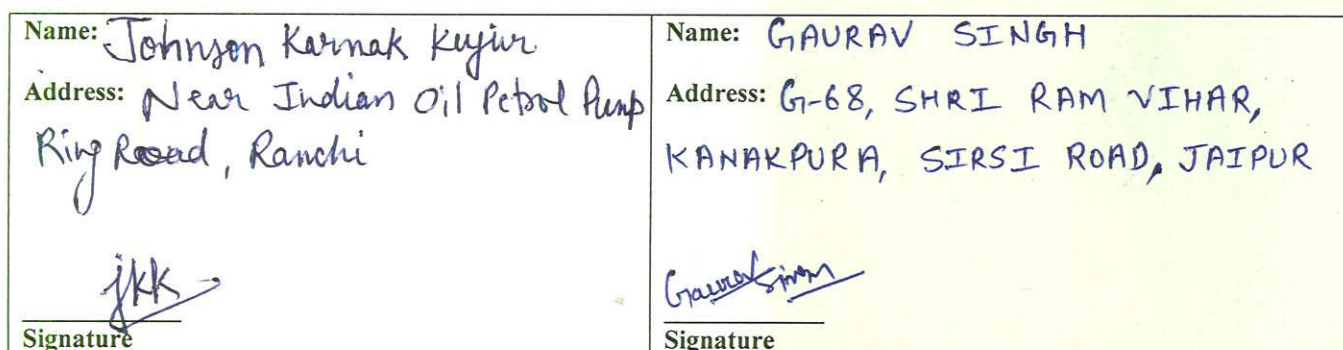 Name: Johnson Karnak Kujur
Address: Near Indian Oil Petrol Pump
Ring Road, Ranchi
jkk
Signature
Name: GAURAV SINGH
Address: G-68, SHRI RAM VIHAR,
KANAKPURA, SIRSI ROAD, JAIPUR
Gaurav Singh
Signature